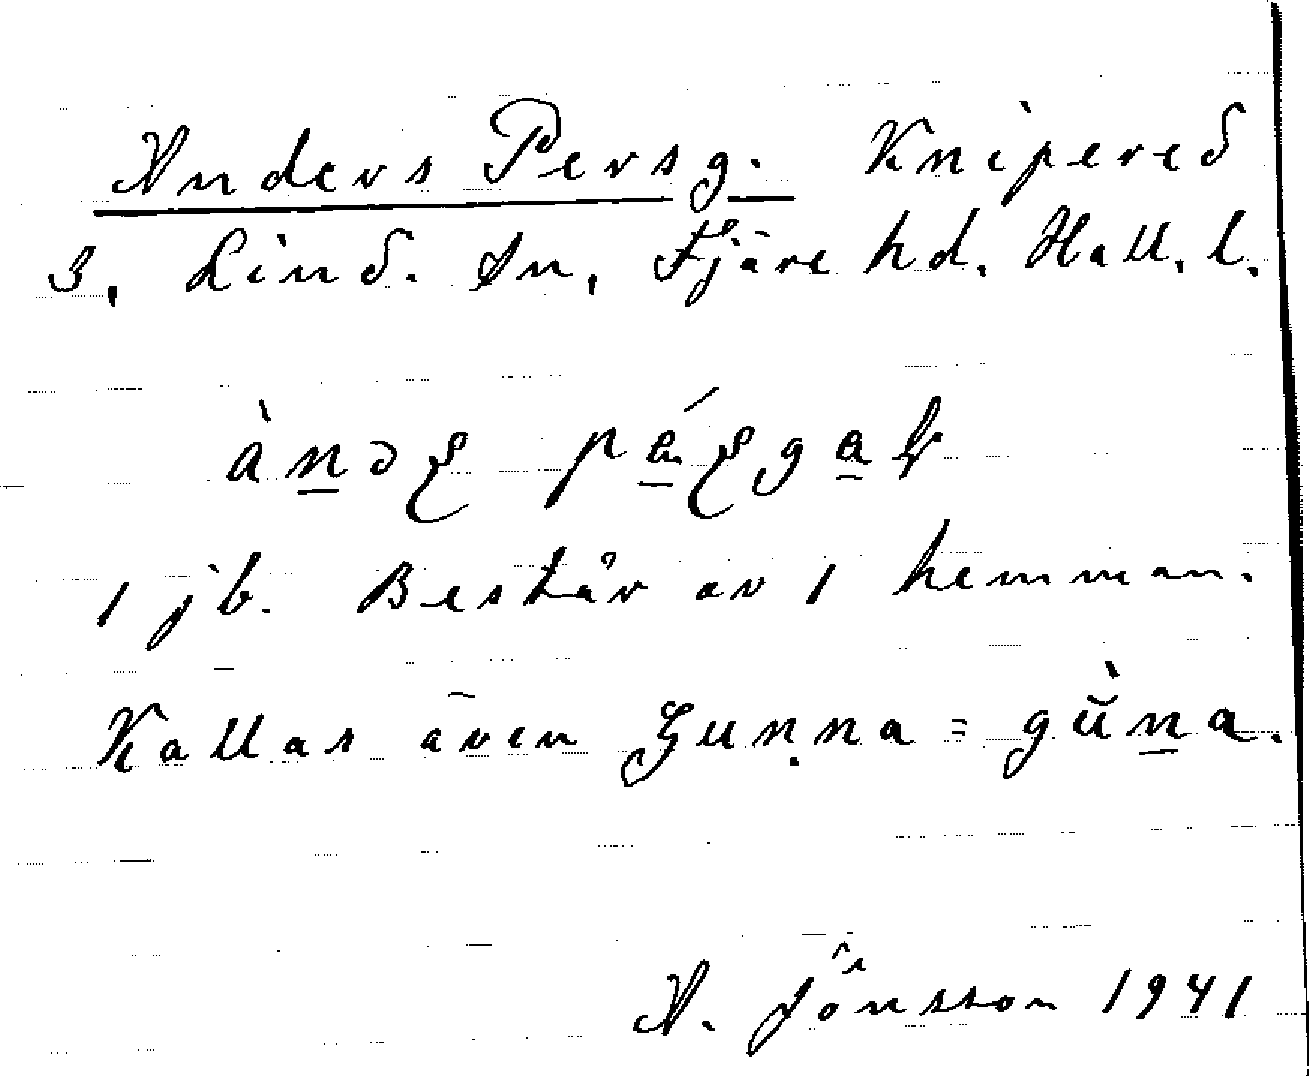 Anders Persg. Knipered
3, Lind. sn, Fjäre hd. Hall. l.
1 jb. Består av 1 hemman.
Kallas även Guṇna = gŭ̀na.
A. Jönsson 1941